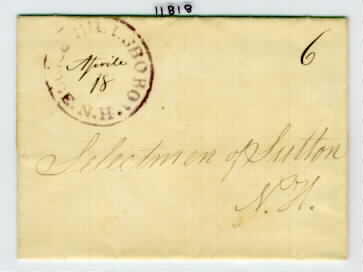 11818
HILLSBORO
Aprile
18
E. N.H.
6
Selectmen of Sutton
N. H.